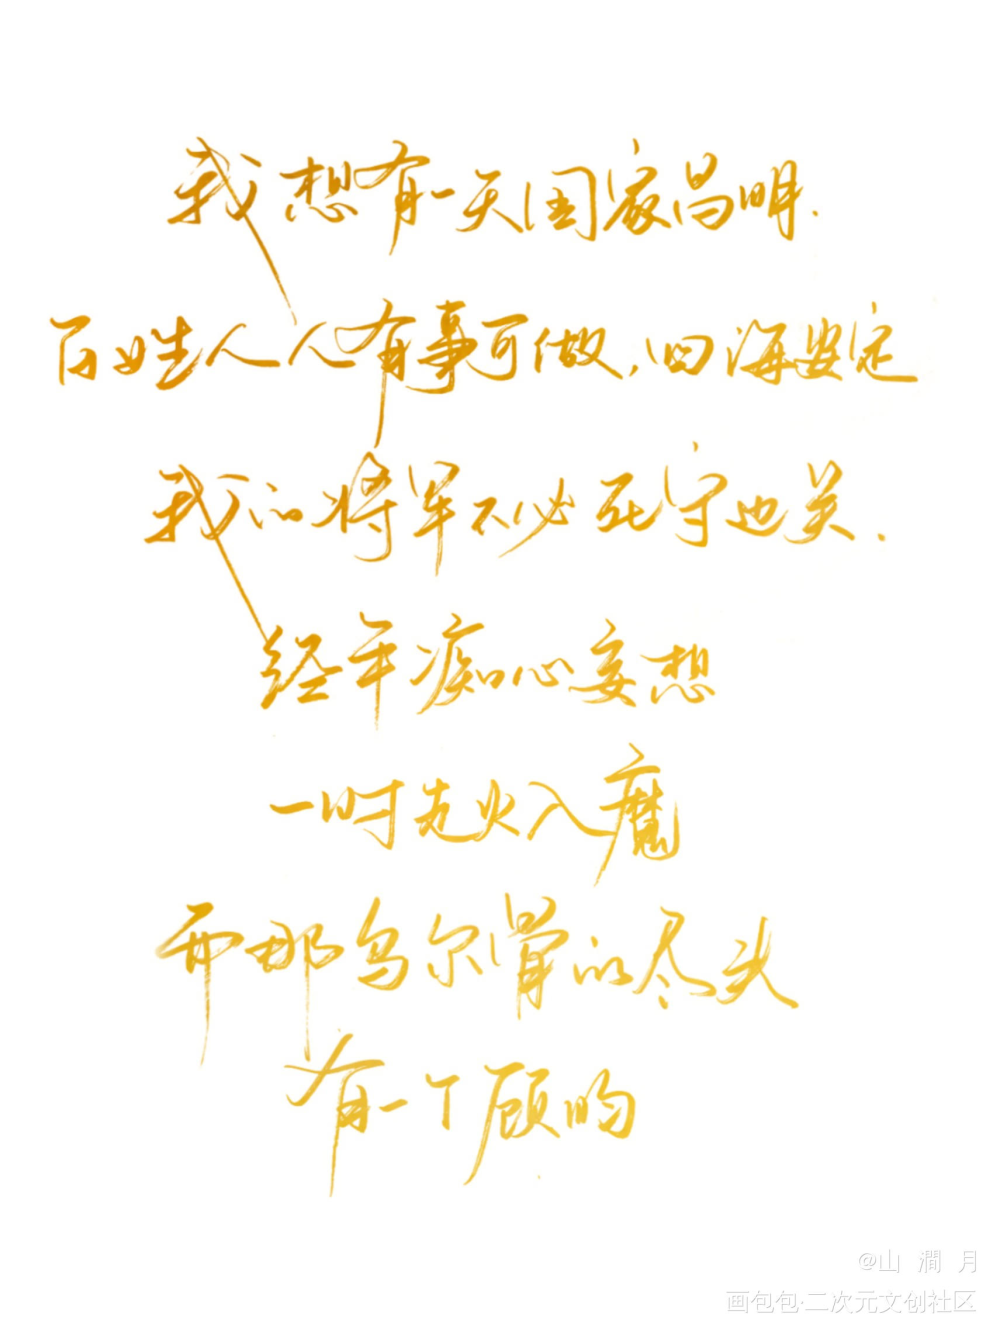 我想有一天国家昌明.
百姓人人有事可做,四海安定
我的将军不必死守边关.
经年痴心妄想
一时走火入魔
而那乌尔骨的尽头
有一个顾昀
@山 澗 月
画包包·二次元文创社区